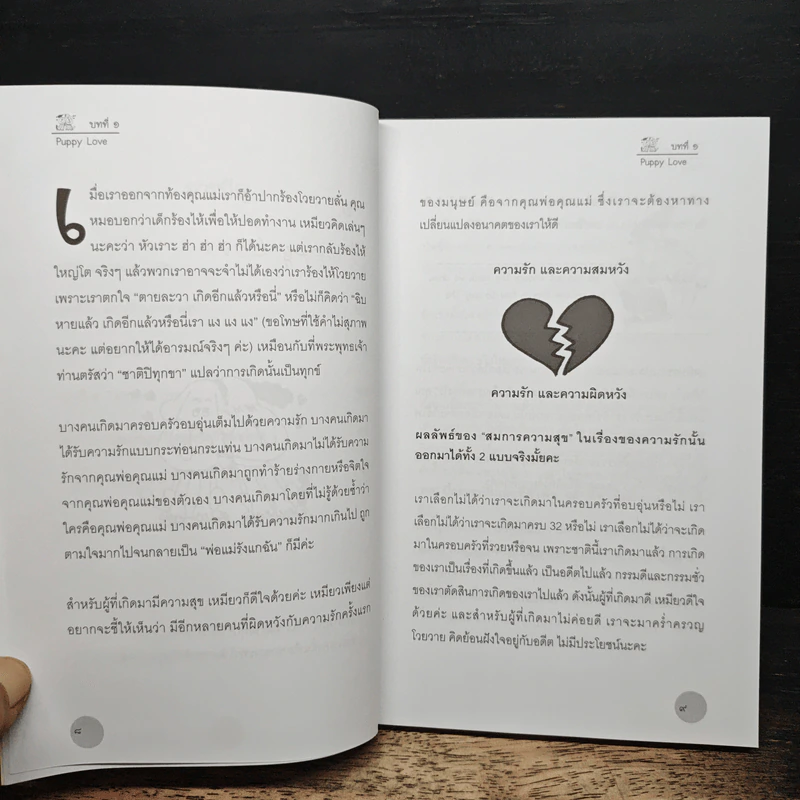 บทที่ ๑
Puppy Love
เมื่อเราออกจากท้องคุณแม่เราก็อ้าปากร้องโวยวายลั่น คุณ
หมอบอกว่าเด็กร้องไห้เพื่อให้ปอดทำงาน เหมียวคิดเล่นๆ
นะคะว่า หัวเราะ ฮ่า ฮ่า ฮ่า ก็ได้นะคะ แต่เรากลับร้องไห้
ใหญ่โต จริงๆ แล้วพวกเราอาจจะจำไม่ได้เองว่าเราร้องไห้โวยวาย
เพราะเราตกใจ "ตายละวา เกิดอีกแล้วหรือนี่" หรือไม่ก็คิดว่า "ฉิบ
หายแล้ว เกิดอีกแล้วหรือนี่เรา แง แง แง" (ขอโทษที่ใช้คำไม่สุภาพ
นะคะ แต่อยากให้ได้อารมณ์จริงๆ ค่ะ) เหมือนกับที่พระพุทธเจ้า
ท่านตรัสว่า "ชาติปิทุกขา" แปลว่าการเกิดนั้นเป็นทุกข์
บางคนเกิดมาครอบครัวอบอุ่นเต็มไปด้วยความรัก บางคนเกิดมา
ได้รับความรักแบบกระท่อนกระแท่น บางคนเกิดมาไม่ได้รับความ
รักจากคุณพ่อคุณแม่ บางคนเกิดมาถูกทำร้ายร่างกายหรือจิตใจ
จากคุณพ่อคุณแม่ของตัวเอง บางคนเกิดมาโดยที่ไม่รู้ด้วยซ้ำว่า
ใครคือคุณพ่อคุณแม่ บางคนเกิดมาได้รับความรักมากเกินไป ถูก
ตามใจมากไปจนกลายเป็น "พ่อแม่รังแกฉัน" ก็มีค่ะ
สำหรับผู้ที่เกิดมามีความสุข เหมียวก็ดีใจด้วยค่ะ เหมียวเพียงแค่
อยากจะชี้ให้เห็นว่า มีอีกหลายคนที่ผิดหวังกับความรักครั้งแรก
๘
บทที่ ๑
Puppy Love
ของมนุษย์ คือจากคุณพ่อคุณแม่ ซึ่งเราจะต้องหาทาง
เปลี่ยนแปลงอนาคตของเราให้ดี
ความรัก และความสมหวัง
ความรัก และความผิดหวัง
ผลลัพธ์ของ "สมการความสุข" ในเรื่องของความรักนั้น
ออกมาได้ทั้ง 2 แบบจริงมั้ยคะ
เราเลือกไม่ได้ว่าเราจะเกิดมาในครอบครัวที่อบอุ่นหรือไม่ เรา
เลือกไม่ได้ว่าเราจะเกิดมาครบ 32 หรือไม่ เราเลือกไม่ได้ว่าจะเกิด
มาในครอบครัวที่รวยหรือจน เพราะชาตินี้เราเกิดมาแล้ว การเกิด
ของเราเป็นเรื่องที่เกิดขึ้นแล้ว เป็นอดีตไปแล้ว กรรมดีและกรรมชั่ว
ของเราตัดสินการเกิดของเราไปแล้ว ดังนั้นผู้ที่เกิดมาดี เหมียวดีใจ
ด้วยค่ะ และสำหรับผู้ที่เกิดมาไม่ค่อยดี เราจะมาคร่ำครวญ
โวยวาย คิดย้อนฝังใจอยู่กับอดีต ไม่มีประโยชน์นะคะ
๙